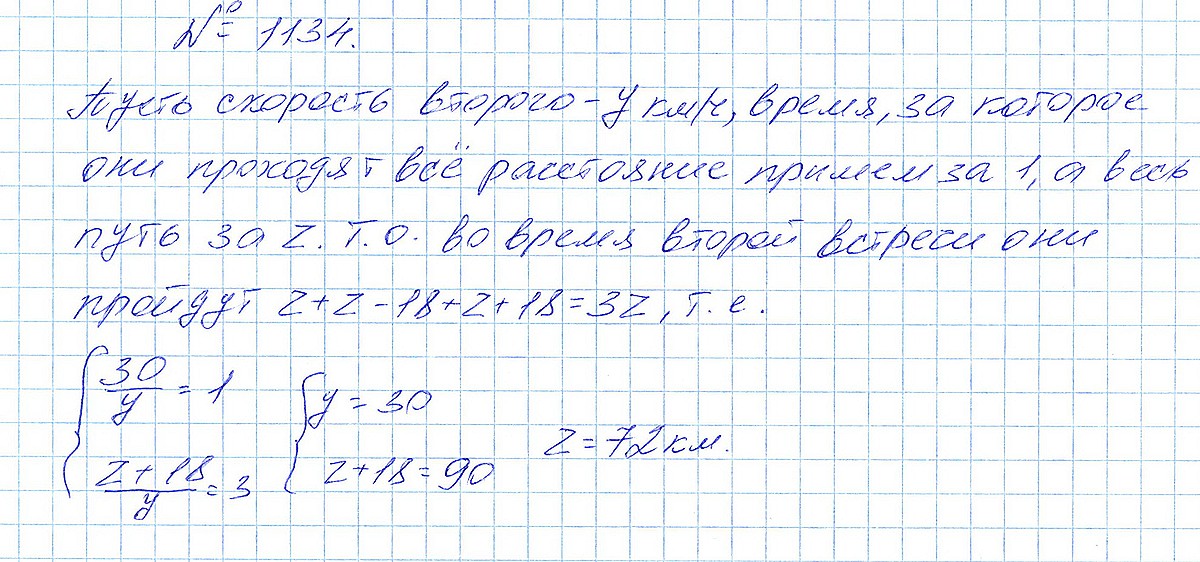 № 1134.
Пусть скорость второго - y км/ч, время, за которое
они проходят всё расстояние примем за 1, а весь
путь за z. Т.о. во время второй встречи они
пройдут z + z - 18 + z + 18 = 3z, т.е.
{ 30/y = 1 { y = 30
z = 72 км.
(z + 18)/y = 3 z + 18 = 90